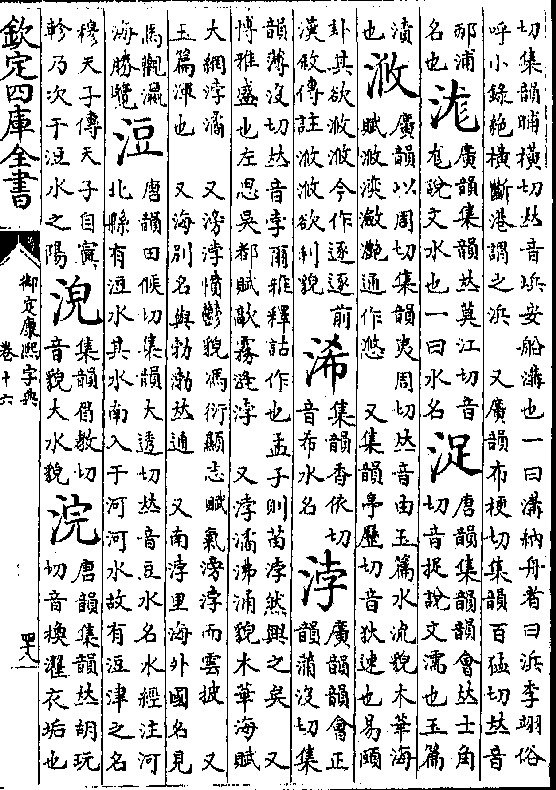 切集韻晡橫切𠀤音浜安船溝也一曰溝納舟者曰浜李翊俗
呼小録絶橫斷港謂之浜 又廣韻布梗切集韻百猛切𠀤音
邴浦
名也
浝
廣韻集韻𠀤莫江切音
尨說文水也一曰水名
浞
唐韻集韻韻會𠀤士角
切音捉說文濡也玉篇
瀆
也
浟
廣韻以周切集韻夷周切𠀤音由玉篇水流貌木華海
賦浟湙瀲灧通作悠 又集韻亭歷切音狄速也易頤
卦其欲浟浟今作逐逐前
漢敘傳註浟浟欲利貌
浠
集韻香依切
音布水名
浡
廣韻韻會正
韻蒲沒切集
韻薄沒切𠀤音孛爾雅釋詁作也孟子則苗浡然興之矣 又
博雅盛也左思吳都賦歊霧漨浡 又浡潏沸涌貌木華海賦
大綱浡潏 又滂浡憤鬱貌馮衍顯志賦氣滂浡而雲披 又
玉篇渾也 又海別名與勃渤𠀤通 又南浡里海外國名見
馬觀瀛
海勝覽
浢
唐韻田候切集韻大透切𠀤音豆水名水經注河
北縣有浢水其水南入于河河水故有浢津之名
穆天子傳天子自窴
軫乃次于浢水之陽
㳸
集韻眉敎切
音貌大水貌
浣
唐韻集韻𠀤胡玩
切音換濯衣垢也
欽定四庫全書
御定康熙字典
卷十六